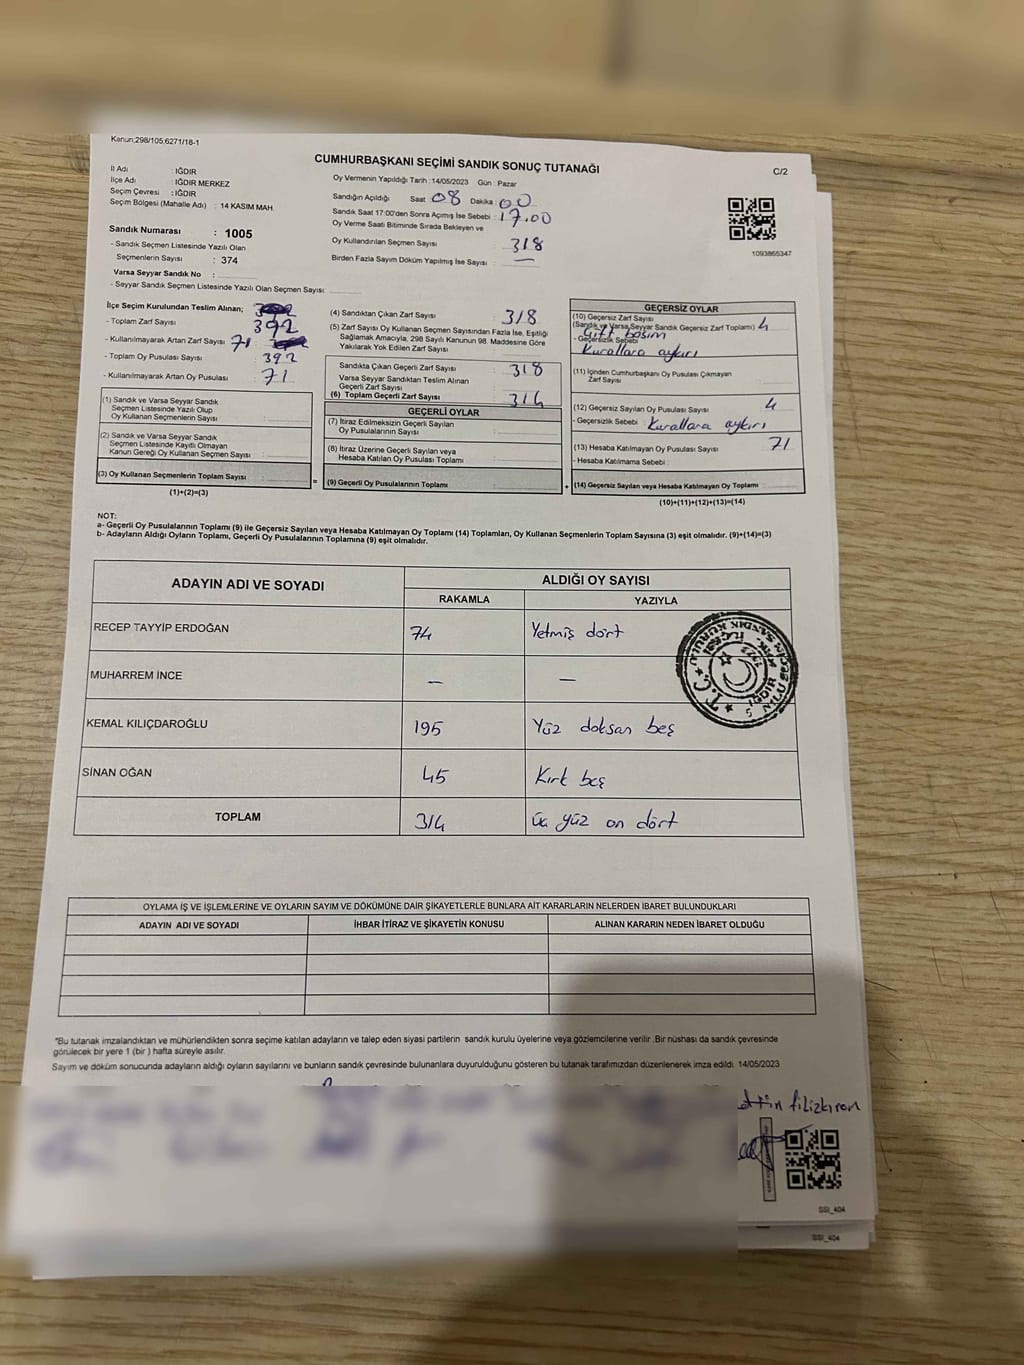 Kanun:298/105;6271/18-1
CUMHURBAŞKANI SEÇİMİ SANDIK SONUÇ TUTANAĞI
C/2
İl Adı : IĞDIR
İlçe Adı : IĞDIR MERKEZ
Seçim Çevresi : IĞDIR
Seçim Bölgesi (Mahalle Adı) : 14 KASIM MAH.
Sandık Numarası : 1005
- Sandık Seçmen Listesinde Yazılı Olan
Seçmenlerin Sayısı : 374
Varsa Seyyar Sandık No :
- Seyyar Sandık Seçmen Listesinde Yazılı Olan Seçmen Sayısı:
Oy Vermenin Yapıldığı Tarih : 14/05/2023 Gün : Pazar
Sandığın Açıldığı Saat 08 Dakika : 00
Sandık Saat 17:00'den Sonra Açımış İse Sebebi : 17.00
Oy Verme Saati Bitiminde Sırada Bekleyen ve
Oy Kullandırılan Seçmen Sayısı 318
Birden Fazla Sayım Döküm Yapılmış İse Sayısı : —
1093865347
İlçe Seçim Kurulundan Teslim Alınan;
- Toplam Zarf Sayısı 392
- Kullanılmayarak Artan Zarf Sayısı 71
- Toplam Oy Pusulası Sayısı : 392
- Kullanılmayarak Artan Oy Pusulası : 71
(1) Sandık ve Varsa Seyyar Sandık
Seçmen Listesinde Yazılı Olup
Oy Kullanan Seçmenlerin Sayısı :
(2) Sandık ve Varsa Seyyar Sandık
Seçmen Listesinde Kayıtlı Olmayan
Kanun Gereği Oy Kullanan Seçmen Sayısı :
(3) Oy Kullanan Seçmenlerin Toplam Sayısı :
(1)+(2)=(3)
(4) Sandıktan Çıkan Zarf Sayısı : 318
(5) Zarf Sayısı Oy Kullanan Seçmen Sayısından Fazla İse, Eşitliği
Sağlamak Amacıyla, 298 Sayılı Kanunun 98. Maddesine Göre
Yakılarak Yok Edilen Zarf Sayısı :
Sandıkta Çıkan Geçerli Zarf Sayısı : 318
Varsa Seyyar Sandıktan Teslim Alınan
Geçerli Zarf Sayısı :
(6) Toplam Geçerli Zarf Sayısı : 314
GEÇERLİ OYLAR
(7) İtiraz Edilmeksizin Geçerli Sayılan
Oy Pusulalarının Sayısı :
(8) İtiraz Üzerine Geçerli Sayılan veya
Hesaba Katılan Oy Pusulası Toplamı :
= (9) Geçerli Oy Pusulalarının Toplamı :
GEÇERSİZ OYLAR
(10) Geçersiz Zarf Sayısı
(Sandık ve Varsa Seyyar Sandık Geçersiz Zarf Toplamı) 4
Çift basım
- Geçersizlik Sebebi
Kurallara aykırı
(11) İçinden Cumhurbaşkanı Oy Pusulası Çıkmayan
Zarf Sayısı :
(12) Geçersiz Sayılan Oy Pusulası Sayısı : 4
- Geçersizlik Sebebi Kurallara aykırı
(13) Hesaba Katılmayan Oy Pusulası Sayısı : 71
- Hesaba Katılmama Sebebi :
+ (14) Geçersiz Sayılan veya Hesaba Katılmayan Oy Toplamı :
(10)+(11)+(12)+(13)=(14)
NOT:
a- Geçerli Oy Pusulalarının Toplamı (9) ile Geçersiz Sayılan veya Hesaba Katılmayan Oy Toplamı (14) Toplamları, Oy Kullanan Seçmenlerin Toplam Sayısına (3) eşit olmalıdır. (9)+(14)=(3)
b- Adayların Aldığı Oyların Toplamı, Geçerli Oy Pusulalarının Toplamına (9) eşit olmalıdır.
ADAYIN ADI VE SOYADI
ALDIĞI OY SAYISI
RAKAMLA YAZIYLA
RECEP TAYYİP ERDOĞAN 74 Yetmiş dört
MUHARREM İNCE — —
KEMAL KILIÇDAROĞLU 195 Yüz doksan beş
SİNAN OĞAN 45 Kırk beş
TOPLAM 314 üç yüz on dört
T.C.
IĞDIR
OYLAMA İŞ VE İŞLEMLERİNE VE OYLARIN SAYIM VE DÖKÜMÜNE DAİR ŞİKAYETLERLE BUNLARA AİT KARARLARIN NELERDEN İBARET BULUNDUKLARI
ADAYIN ADI VE SOYADI İHBAR İTİRAZ VE ŞİKAYETİN KONUSU ALINAN KARARIN NEDEN İBARET OLDUĞU
*Bu tutanak imzalandıktan ve mühürlendikten sonra seçime katılan adayların ve talep eden siyasi partilerin sandık kurulu üyelerine veya gözlemcilerine verilir .Bir nüshası da sandık çevresinde
görülecek bir yere 1 (bir ) hafta süreyle asılır.
Sayım ve döküm sonucunda adayların aldığı oyların sayılarını ve bunların sandık çevresinde bulunanlara duyurulduğunu gösteren bu tutanak tarafımızdan düzenlenerek imza edildi. 14/05/2023
filizkıran
SSI_404
SSI_404